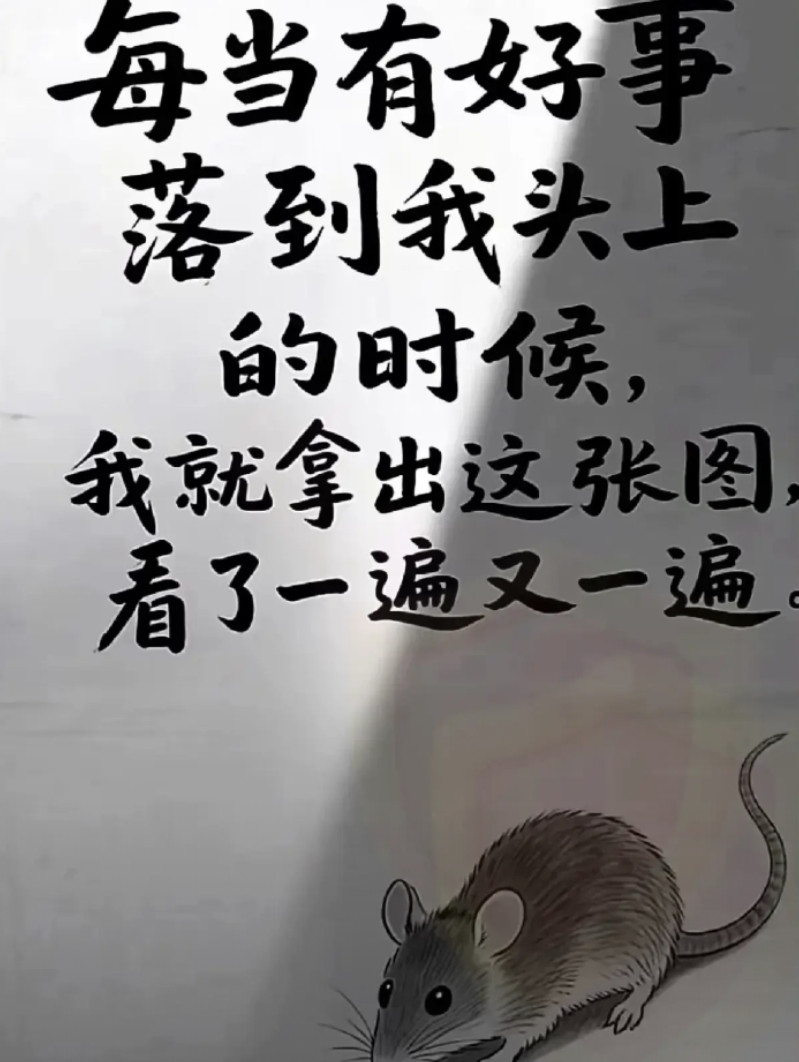 每当有好事
落到我头上
的时候，
我就拿出这张图，
看了一遍又一遍。